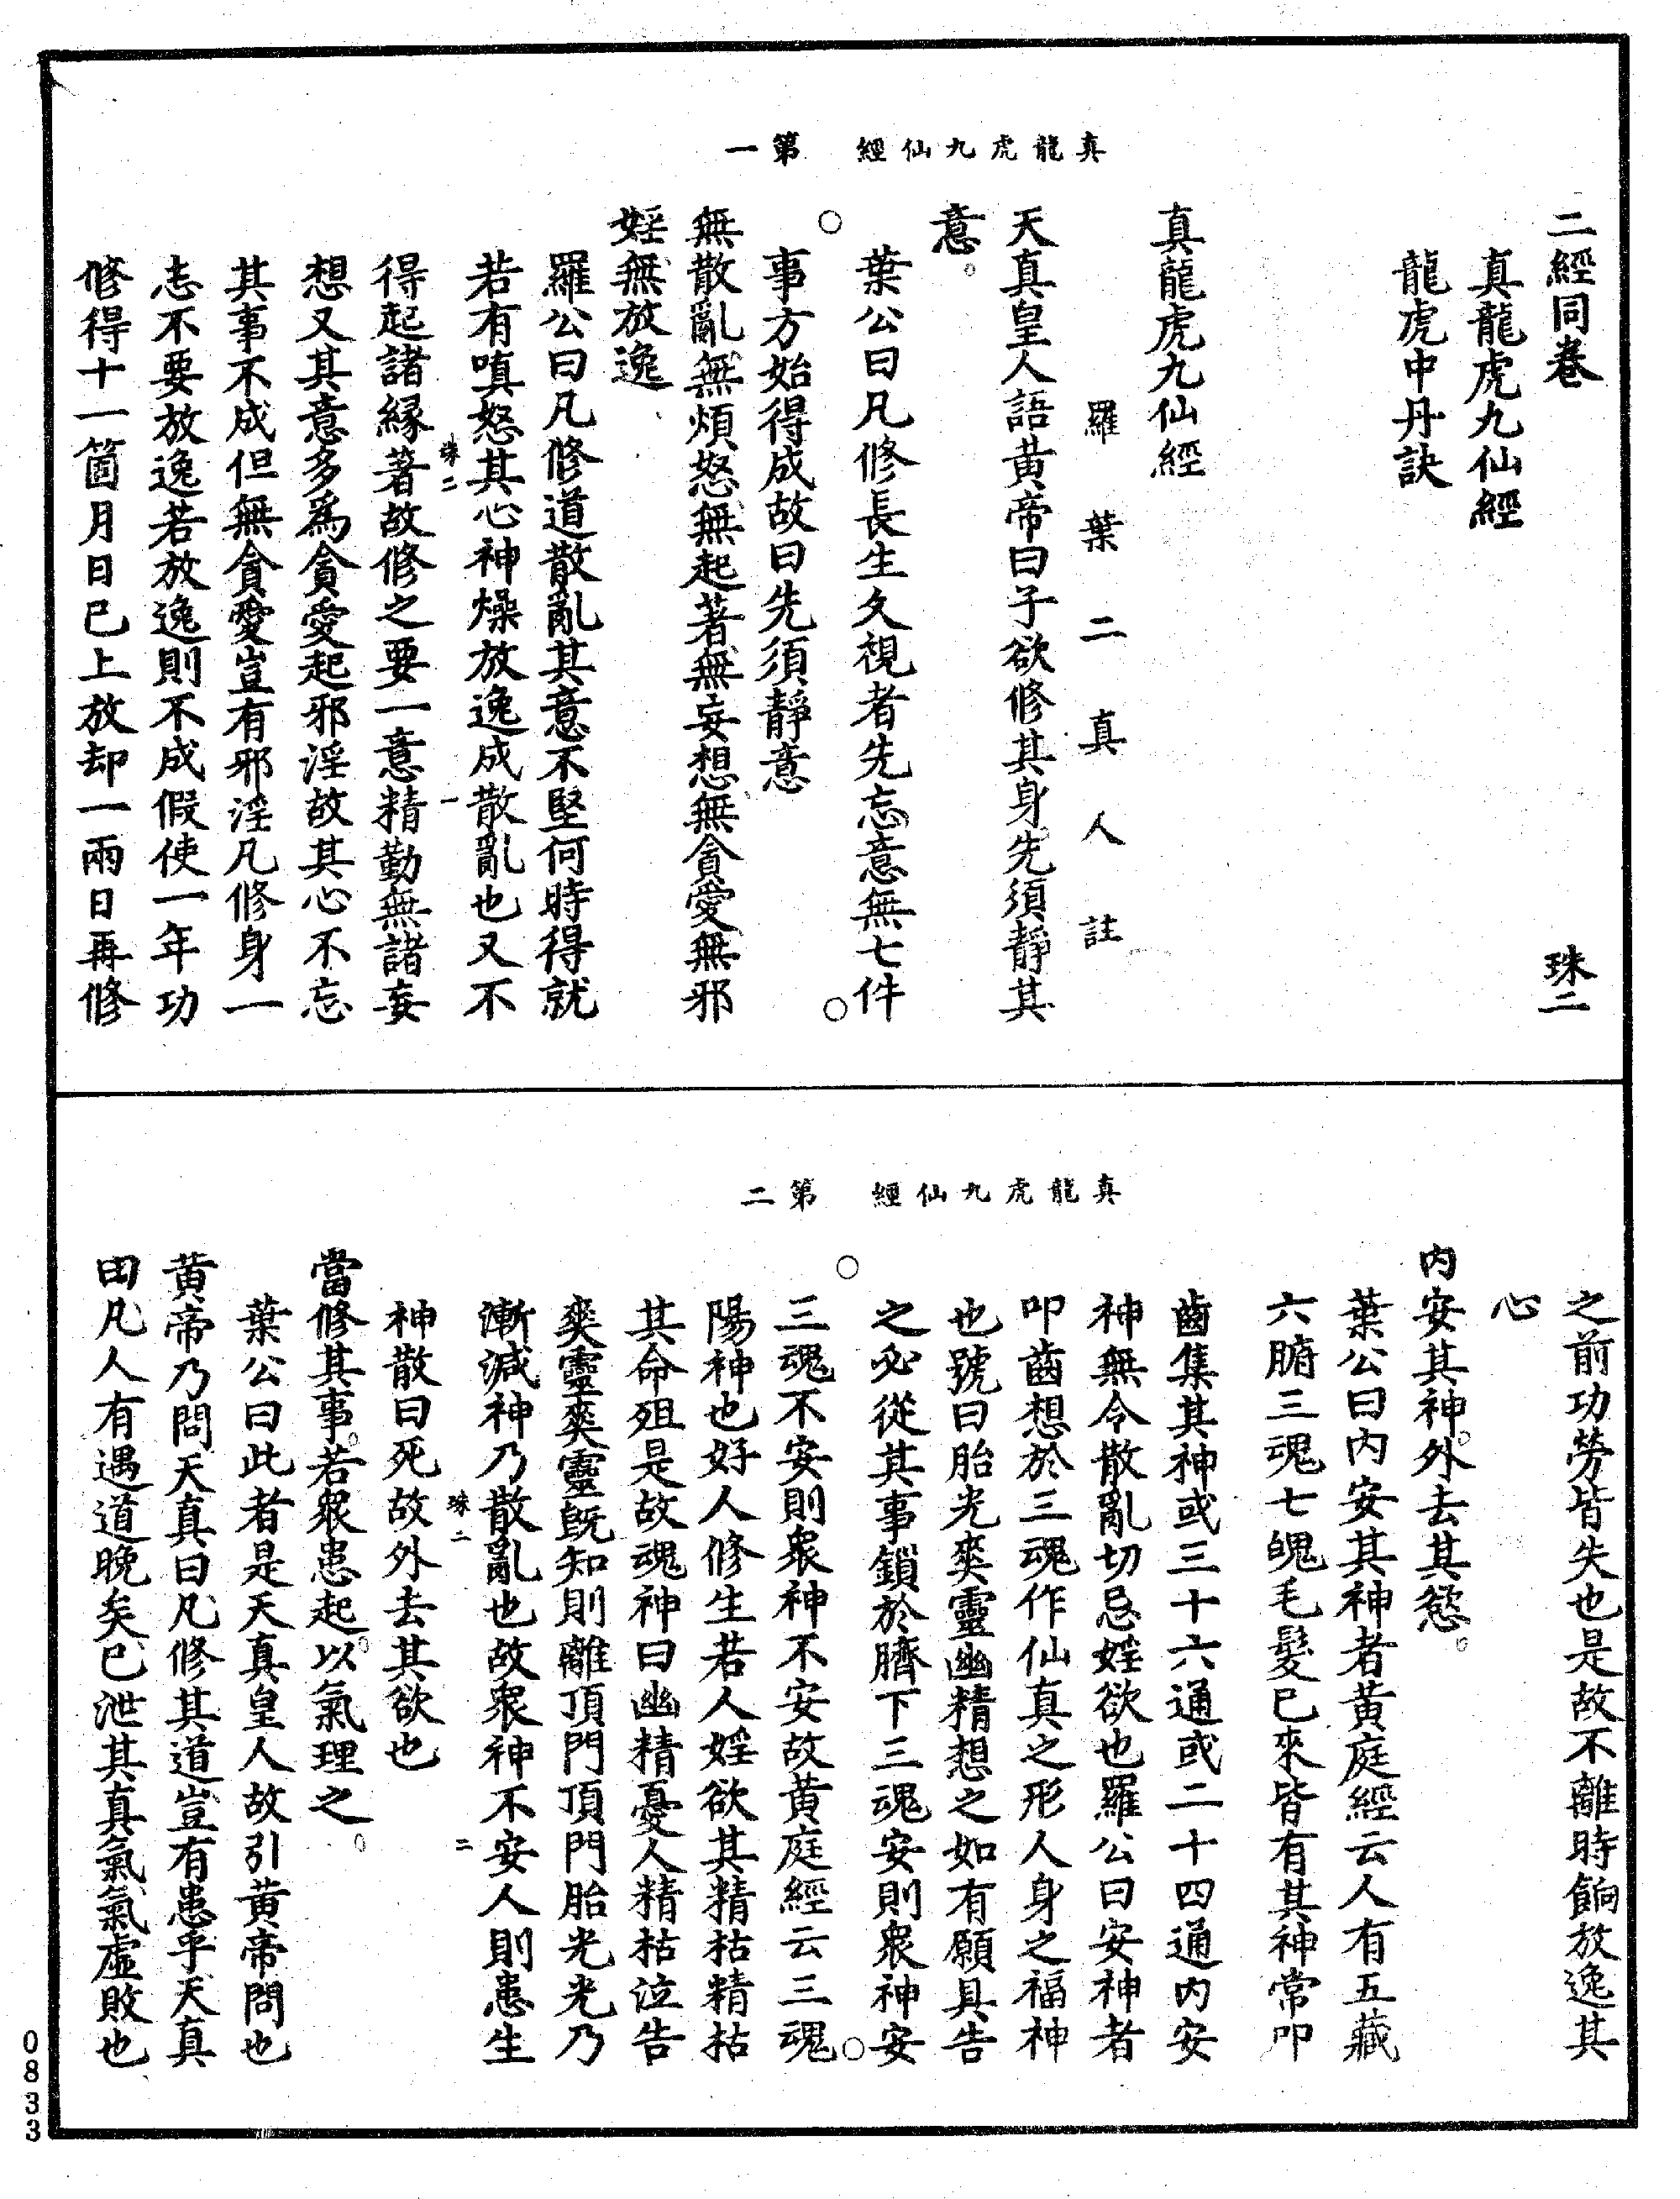 真龍虎九仙經　第一
二經同卷　珠二
真龍虎九仙經
龍虎中丹訣
真龍虎九仙經
羅葉二真人註
天真皇人語黄帝曰子欲修其身先須靜其
意
葉公曰凡修長生久視者先忘意無七件
事方始得成故曰先須靜意
無散亂無煩怒無起著無妄想無貪愛無邪
婬無放逸
羅公曰凡修道散亂其意不堅何時得就
若有嗔怒其心神燥放逸成散亂也又不
珠二　一
得起諸緣著故修之要一意精勤無諸妄
想又其意多爲貪愛起邪淫故其心不忘
其事不成但無貪愛豈有邪淫凡修身一
志不要放逸若放逸則不成假使一年功
修得十一箇月日已上放却一兩日再修
真龍虎九仙經　第二
之前功勞皆失也是故不離時餉放逸其
心
内安其神外去其慾
葉公曰内安其神者黄庭經云人有五藏
六腑三魂七魄毛髮已來皆有其神常叩
齒集其神或三十六通或二十四通内安
神無令散亂切忌婬欲也羅公曰安神者
叩齒想於三魂作仙真之形人身之福神
也號曰胎光爽靈幽精想之如有願具告
之必從其事鎖於臍下三魂安則衆神安
三魂不安則衆神不安故黄庭經云三魂
陽神也好人修生若人婬欲其精枯精枯
其命殂是故魂神曰幽精憂人精枯泣告
爽靈爽靈既知則離頂門頂門胎光光乃
漸減神乃散亂也故衆神不安人則患生
珠二　二
神散曰死故外去其欲也
當修其事若衆患起以氣理之
葉公曰此者是天真皇人故引黄帝問也
黄帝乃問天真曰凡修其道豈有患乎天真
曰凡人有遇道晚矣已泄其真氣氣虛敗也
0833